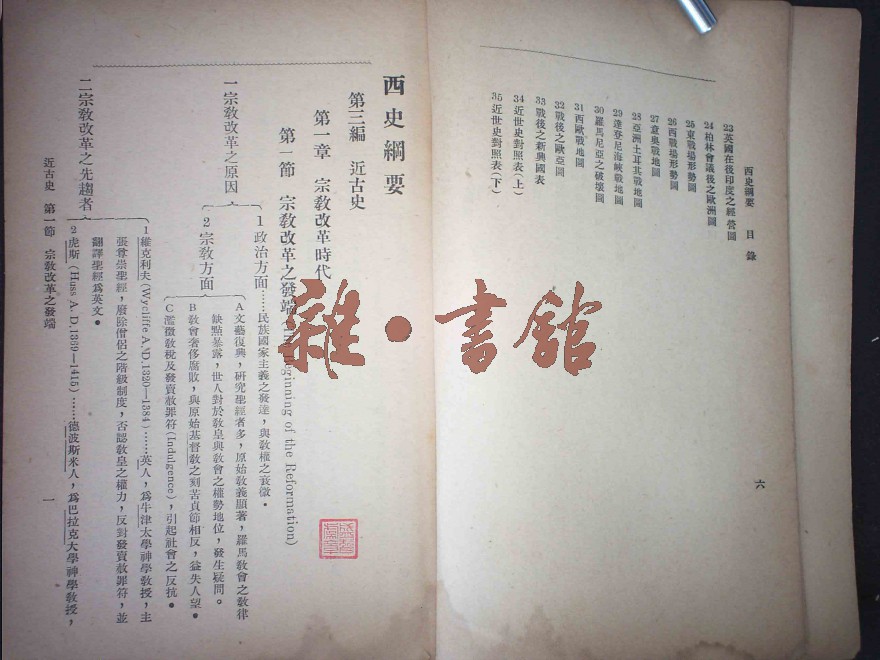 西史綱要　目錄
23英國在後印度之經營圖
24柏林會議後之歐洲圖
25東戰場形勢圖
26西戰場形勢圖
27意奧戰地圖
28亞洲土耳其戰地圖
29達登尼海峽戰地圖
30羅馬尼亞之破壞圖
31西歐戰地圖
32戰後之歐亞圖
33戰後之新興國表
34近世史對照表(上)
35近世史對照表(下)
六
西史綱要
第三編　近古史
第一章　宗教改革時代
第一節　宗教改革之發端(The Beginning of the Reformation)
一宗教改革之原因
1政治方面……民族國家主義之發達，與教權之衰微。
2宗教方面
A文藝復興，研究聖經者多，原始教義顯著，羅馬教會之教律
缺點暴露，世人對於教皇與教會之權勢地位，發生疑問。
B教會奢侈腐敗，與原始基督教之刻苦貞節相反，益失人望。
C濫徵教稅及發賣赦罪符(Indulgence)，引起社會之反抗。
二宗教改革之先趨者
1維克利夫(Wycliffe A. D.1320—1384)……英人，爲牛津大學神學教授，主
張尊崇聖經，廢除僧侶之階級制度，否認教皇之權力，反對發賣赦罪符，並
翻譯聖經爲英文。
2虎斯(Huss A. D.1369—1415)……德波斯米人，爲巴拉克大學神學教授，
近古史　第一節　宗教改革之發端
一
雜·書館